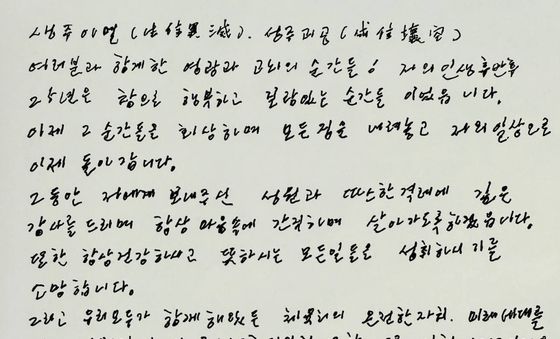 생주이멸(生住異滅). 성주괴공(成住壞空)
여러분과 함께한 영광과 고뇌의 순간들! 저의 인생후반후
25년은 참으로 행복하고 보람있는 순간들 이었읍니다.
이제 그 순간들을 회상하며 모든 짐을 내려놓고 저의 일상으로
이제 돌아갑니다.
그동안 저에게 보내주신 성원과 따스한격려에 깊은
감사를드리며 항상 마음속에 간직하며 살아가도록하겠읍니다.
또한 항상건강하시고 뜻하시는 모든일들을 성취하시기를
소망합니다.
그리고 우리모두가 함께 해왔든 체육회의 온전한자치. 미래세대를